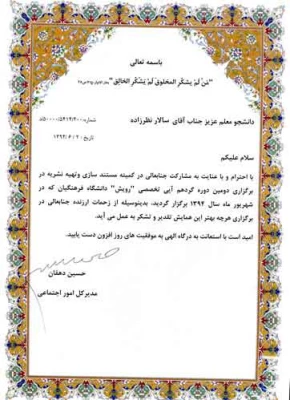 باسمه تعالی
"مَن لَم یَشکُرِ المَخلوق لَم یَشکُرِ الخالِق"
شماره: ۵۰۰۰۰/۵۴۱۴/۲۰۰/د
دانشجو معلم عزیز جناب آقای سالار نظرزاده
تاریخ: ۱۳۹۴/۶/۳۰
سلام علیکم
با احترام و با عنایت به مشارکت جنابعالی در کمیته مستند سازی وتهیه نشریه در
برگزاری دومین دوره گردهم آیی تخصصی "رویش" دانشگاه فرهنگیان که در
شهریور ماه سال ۱۳۹۴ برگزار گردید، بدینوسیله از زحمات ارزنده جنابعالی در
برگزاری هرچه بهتر این همایش تقدیر و تشکر به عمل می آید.
امید است با استعانت به درگاه الهی به موفقیت های روز افزون دست یابید.
حسین دهقان
مدیرکل امور اجتماعی